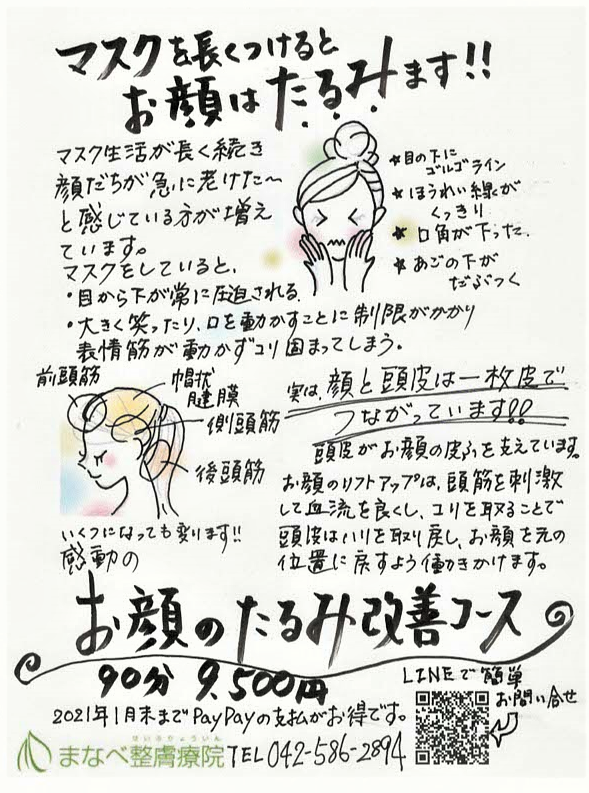 マスクを長くつけると
お顔はたるみます!!
マスク生活が長く続き
顔だちが急に老けた〜
と感じている方が増え
ています。
マスクをしていると、
・目から下が常に圧迫される。
・大きく笑ったり、口を動かすことに制限がかかり
表情筋が動かずコリ固まってしまう。
★目の下に
ゴルゴライン
★ほうれい線が
くっきり
★口角が下った。
★あごの下が
だぶつく
前頭筋
帽状
腱膜
側頭筋
後頭筋
実は、顔と頭皮は一枚皮で
つながっています!!
頭皮がお顔の皮ふを支えています。
お顔のリフトアップは、頭筋を刺激
して血流を良くし、コリを取ることで
頭皮はハリを取り戻し、お顔を元の
位置に戻すよう働きかけます。
いくつになっても変ります!!
感動の
お顔のたるみ改善コース
90分 9,500円
2021年1月末までPayPayの支払がお得です。
LINEで簡単
お問い合せ
せいふりょういん
まなべ整膚療院 TEL 042-586-2894